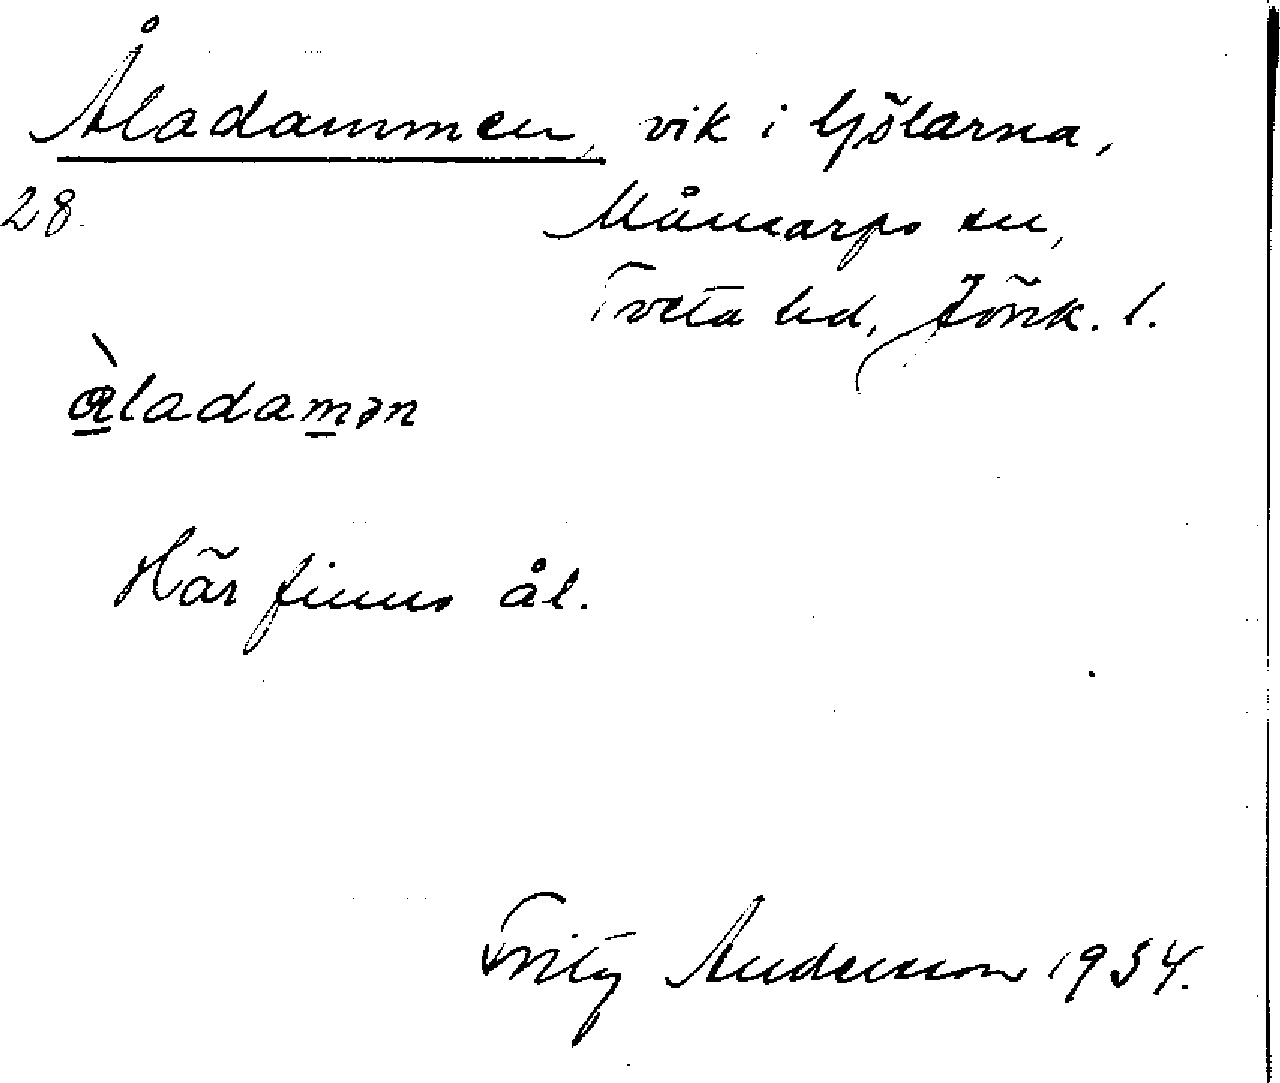 Åladammen, vik i Gölarna,
28. Månsarps sn,
Tveta hd, Jönk. l.
àladamən
Här finns ål.
Fritz Andersson 1934.